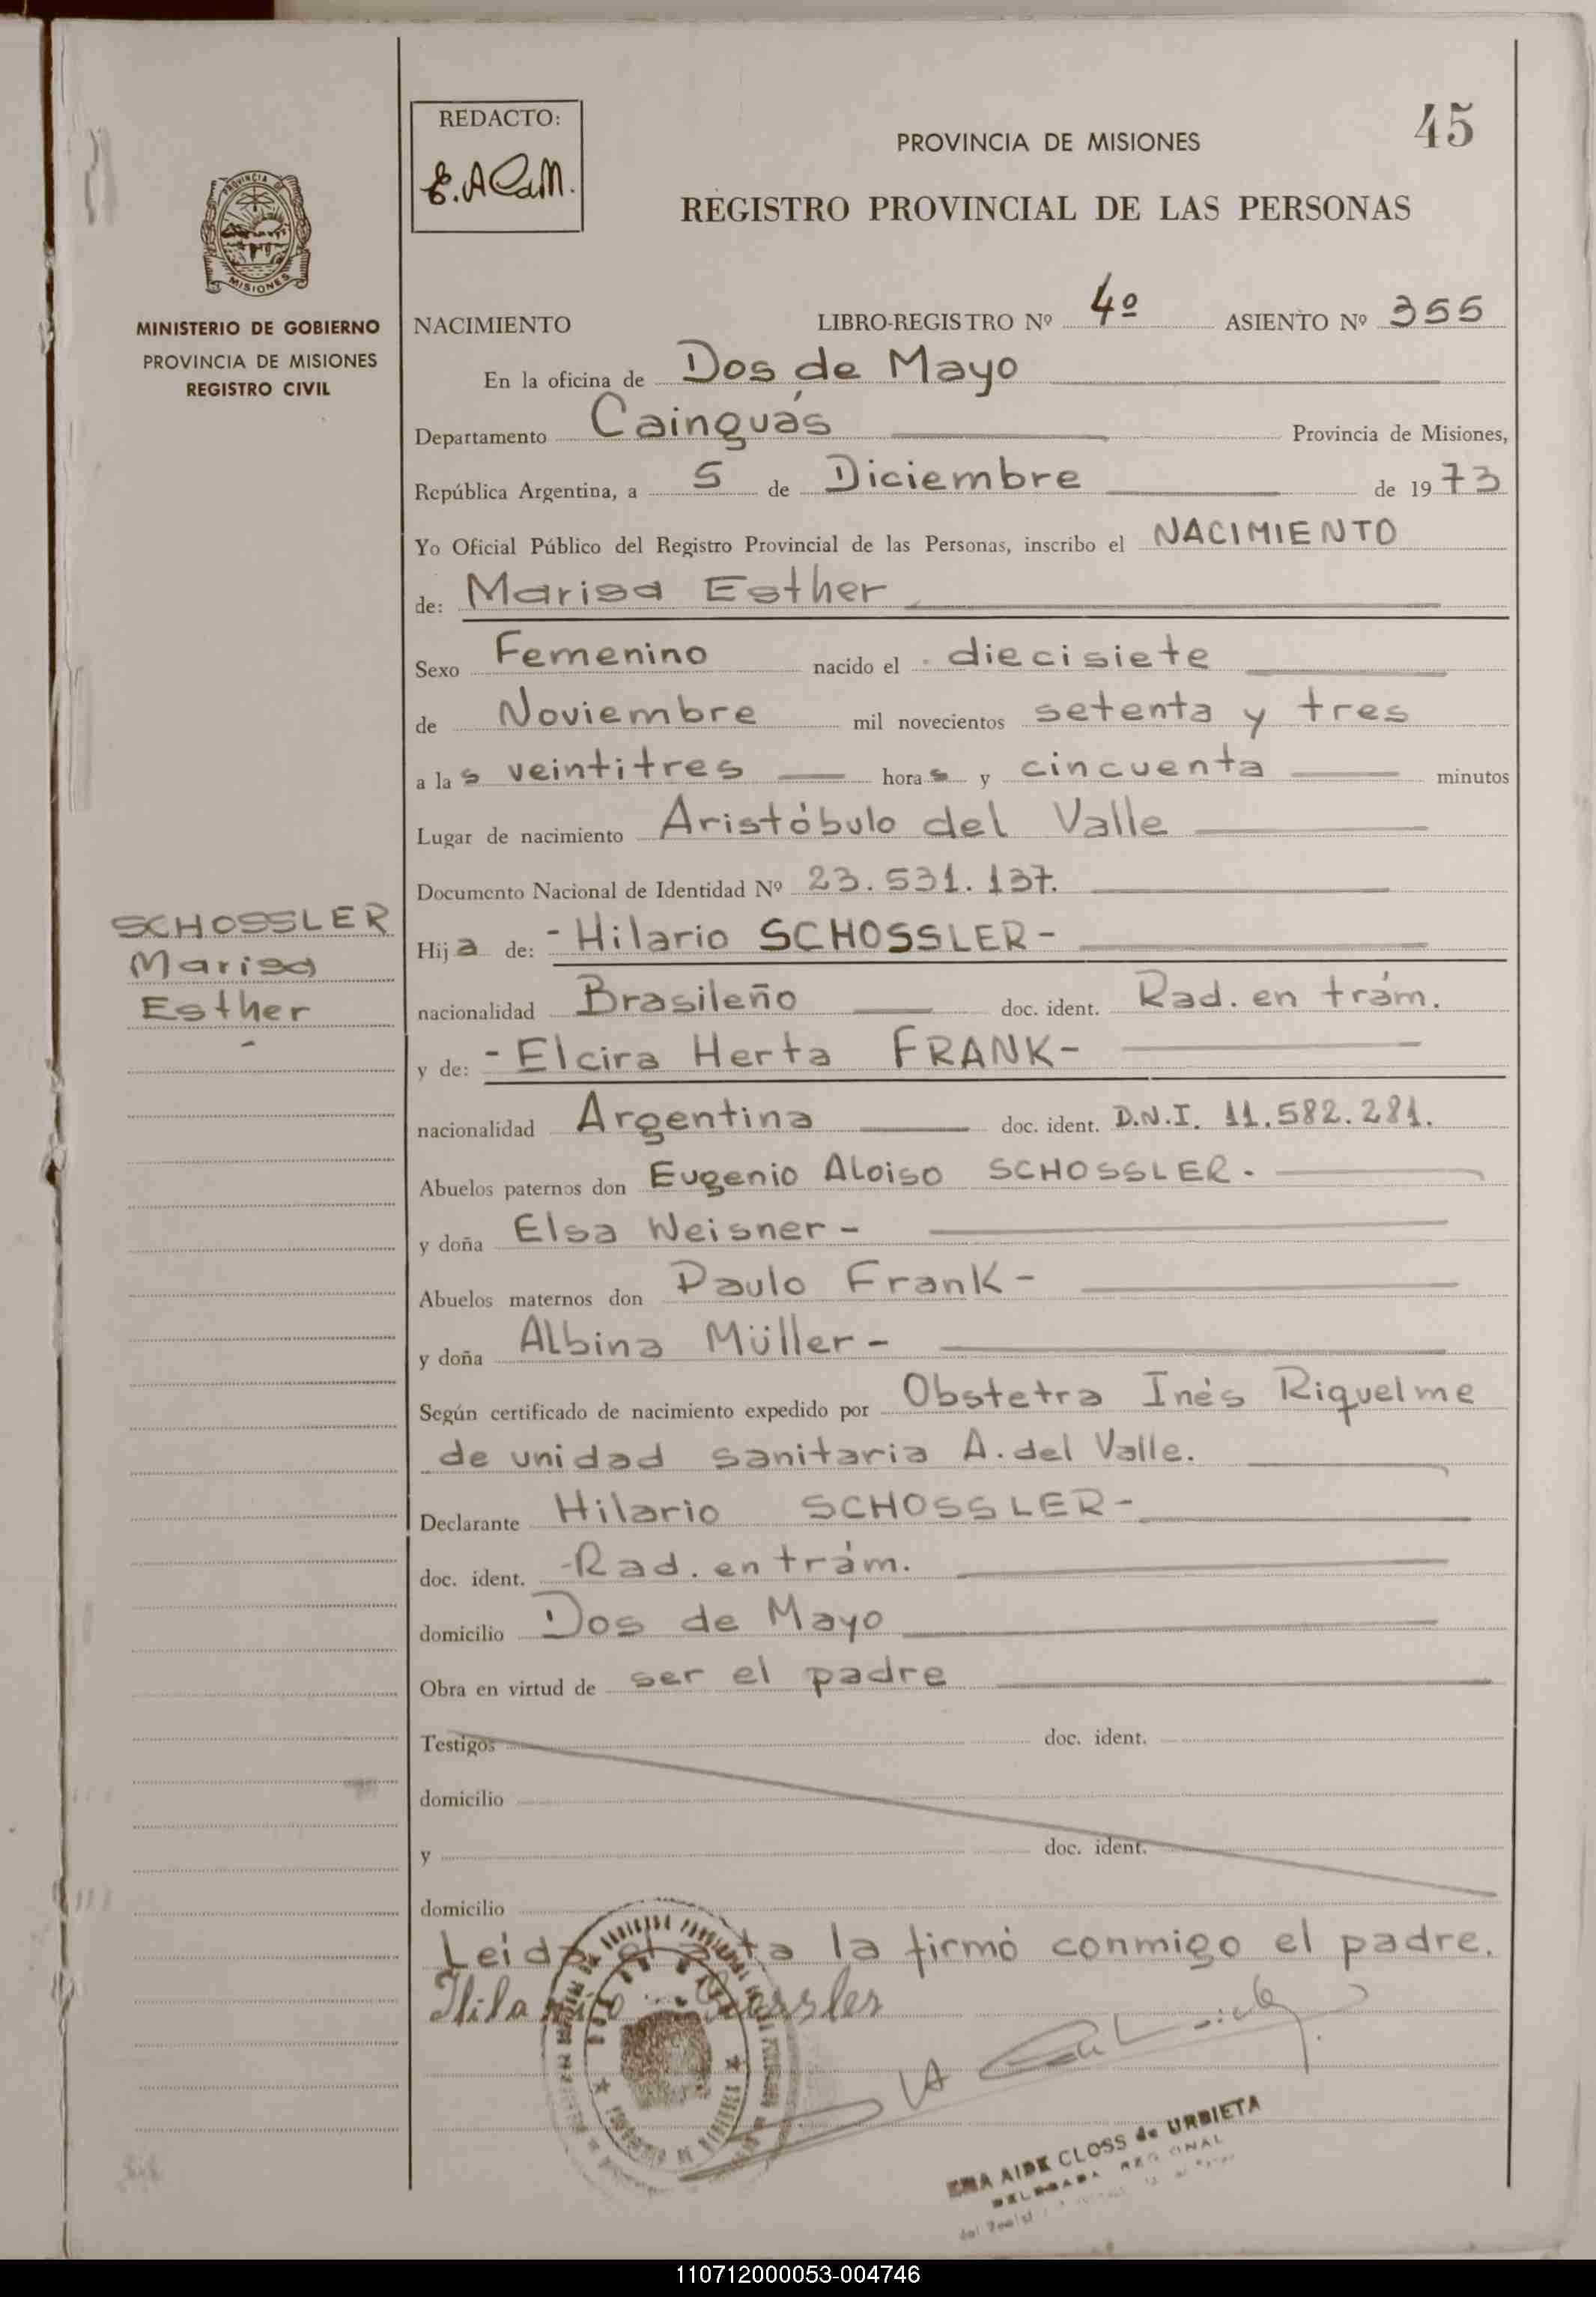 45
REDACTO:
PROVINCIA DE MISIONES
REGISTRO PROVINCIAL DE LAS PERSONAS
PROVINCIA DE
MISIONES
MINISTERIO DE GOBIERNO
PROVINCIA DE MISIONES
REGISTRO CIVIL
NACIMIENTO LIBRO-REGISTRO Nº 4º ASIENTO Nº 355
En la oficina de Dos de Mayo
Departamento Cainguás Provincia de Misiones,
República Argentina, a 5 de Diciembre de 1973
Yo Oficial Público del Registro Provincial de las Personas, inscribo el NACIMIENTO
de: Marisa Esther
Sexo Femenino nacido el diecisiete
de Noviembre mil novecientos setenta y tres
a las veintitres horas y cincuenta minutos
Lugar de nacimiento Aristóbulo del Valle
Documento Nacional de Identidad Nº 23.531.137.
SCHOSSLER
Marisa
Esther
-
Hija de: - Hilario SCHOSSLER -
nacionalidad Brasileño doc. ident. Rad. en trám.
y de: - Elcira Herta FRANK -
nacionalidad Argentina doc. ident. D.N.I. 11.582.281.
Abuelos paternos don Eugenio Aloiso SCHOSSLER. -
y doña Elsa Weisner -
Abuelos maternos don Paulo Frank -
y doña Albina Müller -
Según certificado de nacimiento expedido por Obstetra Inés Riquelme
de unidad sanitaria A. del Valle.
Declarante Hilario SCHOSSLER -
doc. ident. -Rad. en trám.
domicilio Dos de Mayo
Obra en virtud de ser el padre
Testigos doc. ident.
domicilio
y doc. ident.
domicilio
Leida el acta la firmó conmigo el padre.
Hilario
EMA AIDE CLOSS de URBIETA
DELEGADA REGIONAL
110712000053-004746